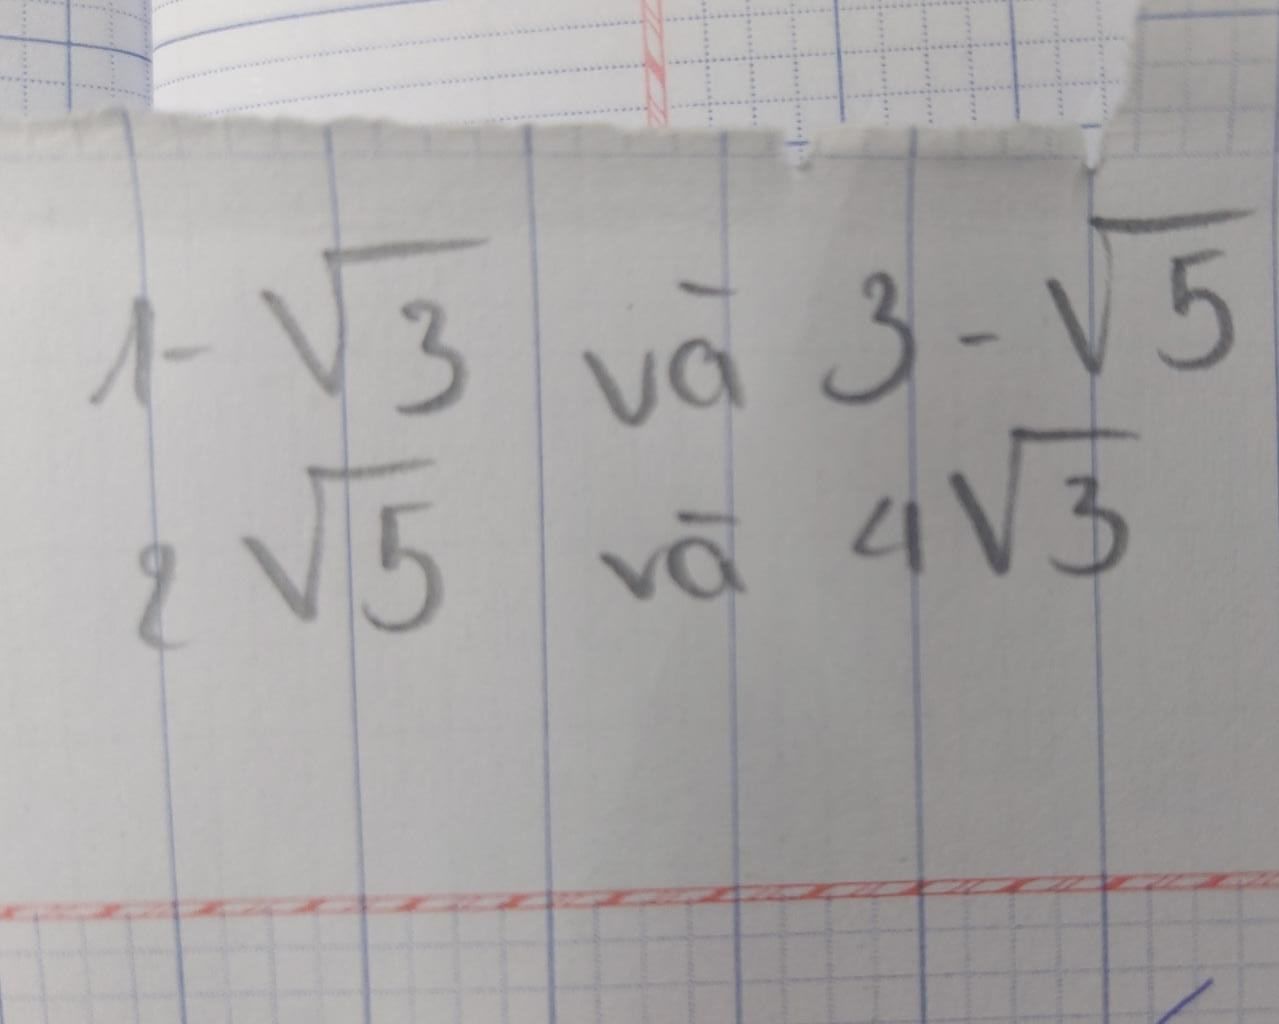 1 - √3 và 3 - √5
2√5 và 4√3